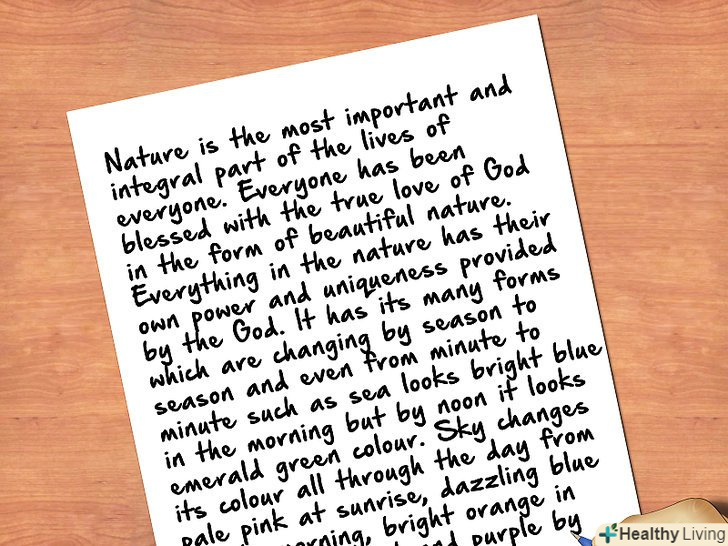 Nature is the most important and
integral part of the lives of
everyone. Everyone has been
blessed with the true love of God
in the form of beautiful nature.
Everything in the nature has their
own power and uniqueness provided
by the God. It has its many forms
which are changing by season to
season and even from minute to
minute such as sea looks bright blue
in the morning but by noon it looks
emerald green colour. Sky changes
its colour all through the day from
pale pink at sunrise, dazzling blue
bright orange in
purple by
Healthy Living